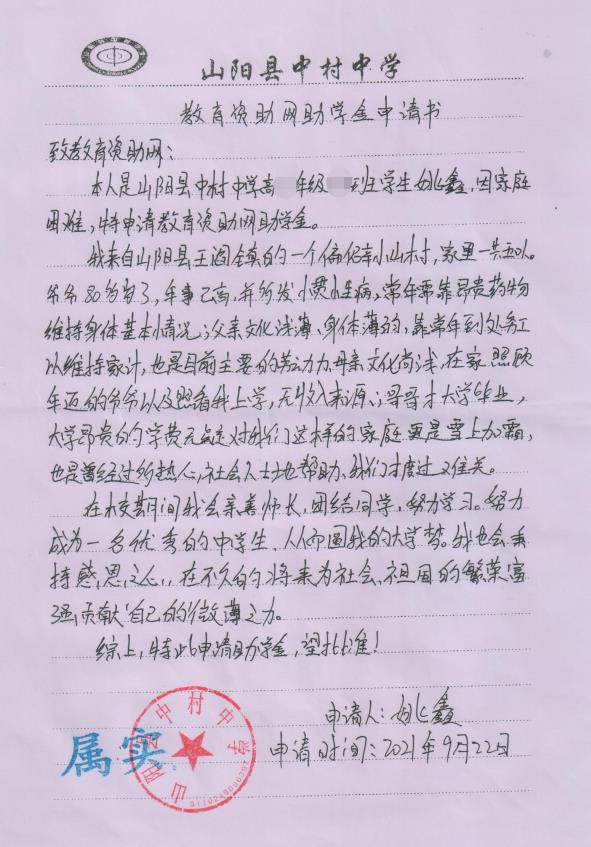 山阳县中村中学
教育资助网助学金申请书
致教育资助网:
本人是山阳县中村中学高 年级 班学生姚鑫,因家庭
困难,特申请教育资助网助学金。
我来自山阳县王阎镇的一个偏僻小山村,家里一共五口人。
爷爷80多岁了,年事已高,并多发慢性病,常年需靠昂贵药物
维持身体基本情况;父亲文化浅薄、身体薄弱,靠常年到处务工
以维持家计,也是目前主要的劳动力,母亲文化尚浅,在家照顾
年迈的爷爷以及照看我上学,无收入来源;哥哥才大学毕业,
大学昂贵的学费无疑对我们这样的家庭更是雪上加霜,
也是曾经过所热心社会人士地帮助、我们才度过又难关。
在校期间我会亲善师长,团结同学,努力学习。努力
成为一名优秀的中学生、从而圆我的大学梦。我也会秉
持感恩之心,在不久的将来为社会、祖国的繁荣富
强贡献自己的微薄之力。
综上,特此申请助学金,望批准!
申请人:姚鑫
申请时间:2021年9月22日
属实
山阳县中村中学